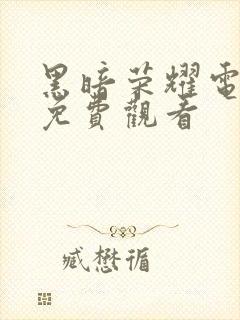 黑暗荣耀電
免費觀看
臧懋循